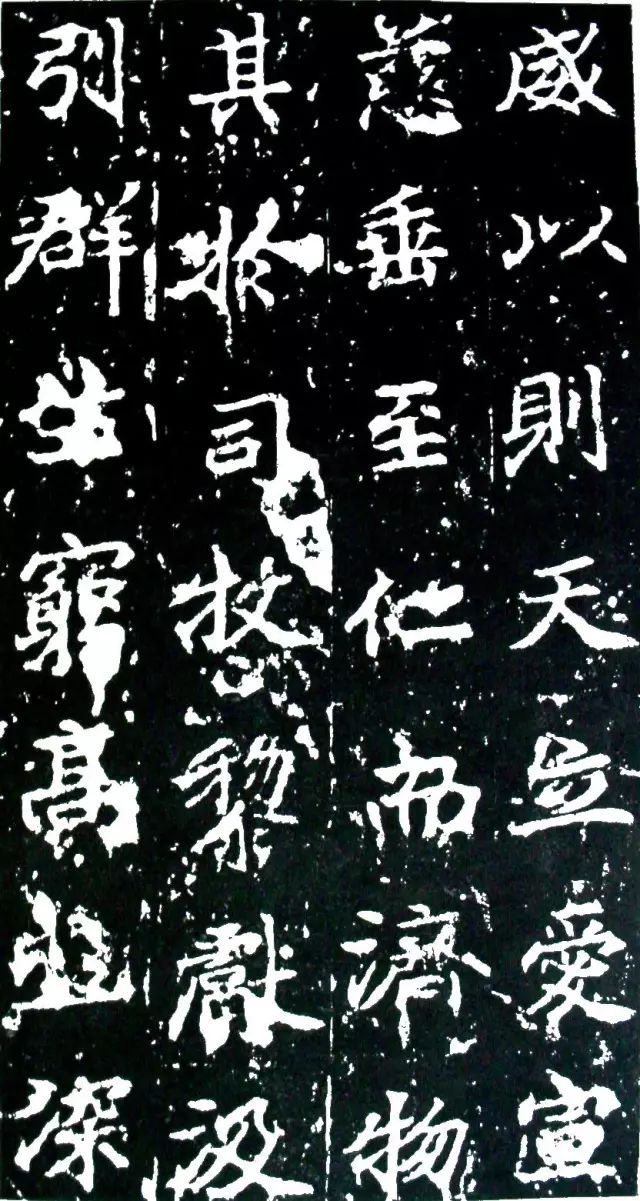 威以則天立愛宣
慈垂至仁而濟物
其於司牧黎獻汲
引群生窮高深